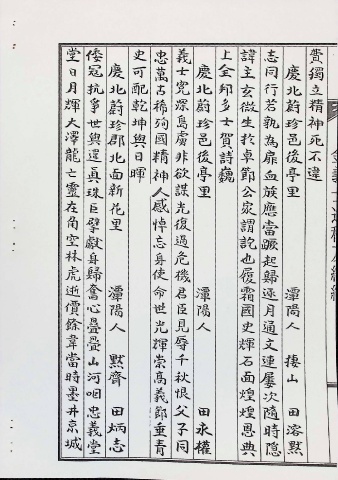 贊獨立精神死不違
慶北蔚珍邑後亭里 潭陽人 捿山 田溶黙
志同行若孰為扉血族應當蹶起歸逐月通文連屢次隨時隱
諱主玄微生於卓節公家謂訖也履霜國史輝石面煌煌恩典
上全邦多士賀詩巍
慶北蔚珍邑後亭里 潭陽人 田永權
義士冤深島虜非欲謀光復過危機君臣見辱千秋恨父子同
忠萬古稀殉國精神人感悼忘身使命世光輝崇高義節垂青
史可配乾坤與日暉
慶北蔚珍郡北面新花里 潭陽人 黙齋 田炳志
倭寇抗爭世與還真珠巨擘獻身歸奮心疊疊山河咽忠義堂
堂日月輝大澤龍亡靈在角空林虎逝價餘韋當時墨井京城